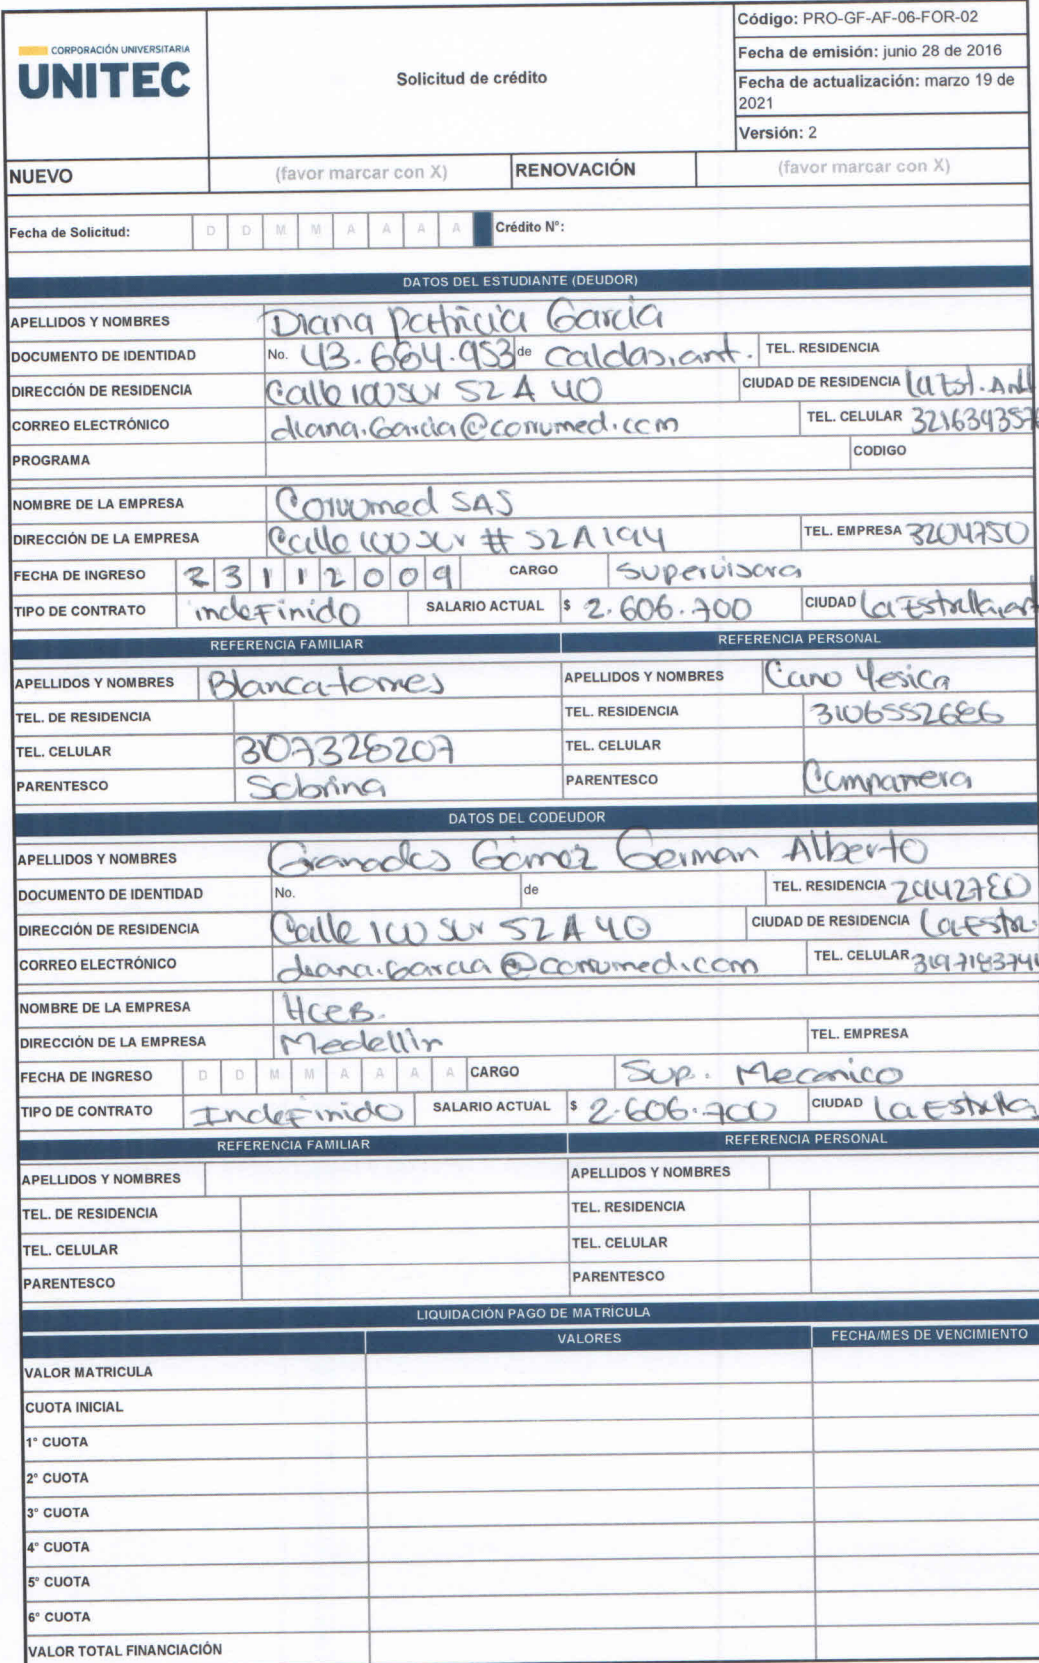 CORPORACIÓN UNIVERSITARIA
UNITEC
Solicitud de crédito
Código: PRO-GF-AF-06-FOR-02
Fecha de emisión: junio 28 de 2016
Fecha de actualización: marzo 19 de
2021
Versión: 2
NUEVO (favor marcar con X) RENOVACIÓN (favor marcar con X)
Fecha de Solicitud: D D M M A A A A Crédito N°:
DATOS DEL ESTUDIANTE (DEUDOR)
APELLIDOS Y NOMBRES Diana Patricia Garcia
DOCUMENTO DE IDENTIDAD No. 43.664.953 de Caldas, ant. TEL. RESIDENCIA
DIRECCIÓN DE RESIDENCIA Calle 100 sur 52 A 40 CIUDAD DE RESIDENCIA La Est. Ant
CORREO ELECTRÓNICO TEL. CELULAR
PROGRAMA CODIGO
NOMBRE DE LA EMPRESA SAS
DIRECCIÓN DE LA EMPRESA Calle 100 sur # 52A194 TEL. EMPRESA 3204750
FECHA DE INGRESO 2 3 1 1 2 0 0 9 CARGO Supervisora
TIPO DE CONTRATO indefinido SALARIO ACTUAL $ 2.606.700 CIUDAD La Estrella, ant
REFERENCIA FAMILIAR REFERENCIA PERSONAL
APELLIDOS Y NOMBRES Blanca torres APELLIDOS Y NOMBRES Cano Yesica
TEL. DE RESIDENCIA TEL. RESIDENCIA 3106552686
TEL. CELULAR 3073282207 TEL. CELULAR
PARENTESCO Sobrina PARENTESCO Compañera
DATOS DEL CODEUDOR
APELLIDOS Y NOMBRES Granados Gómez German Alberto
DOCUMENTO DE IDENTIDAD No. de TEL. RESIDENCIA
DIRECCIÓN DE RESIDENCIA Calle 100 sur 52 A 40 CIUDAD DE RESIDENCIA La Estre.
CORREO ELECTRÓNICO TEL. CELULAR
NOMBRE DE LA EMPRESA HCEB.
DIRECCIÓN DE LA EMPRESA Medellin TEL. EMPRESA
FECHA DE INGRESO D D M M A A A A CARGO Sup. Mecanico
TIPO DE CONTRATO Indefinido SALARIO ACTUAL $ 2.606.700 CIUDAD La Estrella
REFERENCIA FAMILIAR REFERENCIA PERSONAL
APELLIDOS Y NOMBRES APELLIDOS Y NOMBRES
TEL. DE RESIDENCIA TEL. RESIDENCIA
TEL. CELULAR TEL. CELULAR
PARENTESCO PARENTESCO
LIQUIDACIÓN PAGO DE MATRÍCULA
VALORES FECHA/MES DE VENCIMIENTO
VALOR MATRICULA
CUOTA INICIAL
1° CUOTA
2° CUOTA
3° CUOTA
4° CUOTA
5° CUOTA
6° CUOTA
VALOR TOTAL FINANCIACIÓN